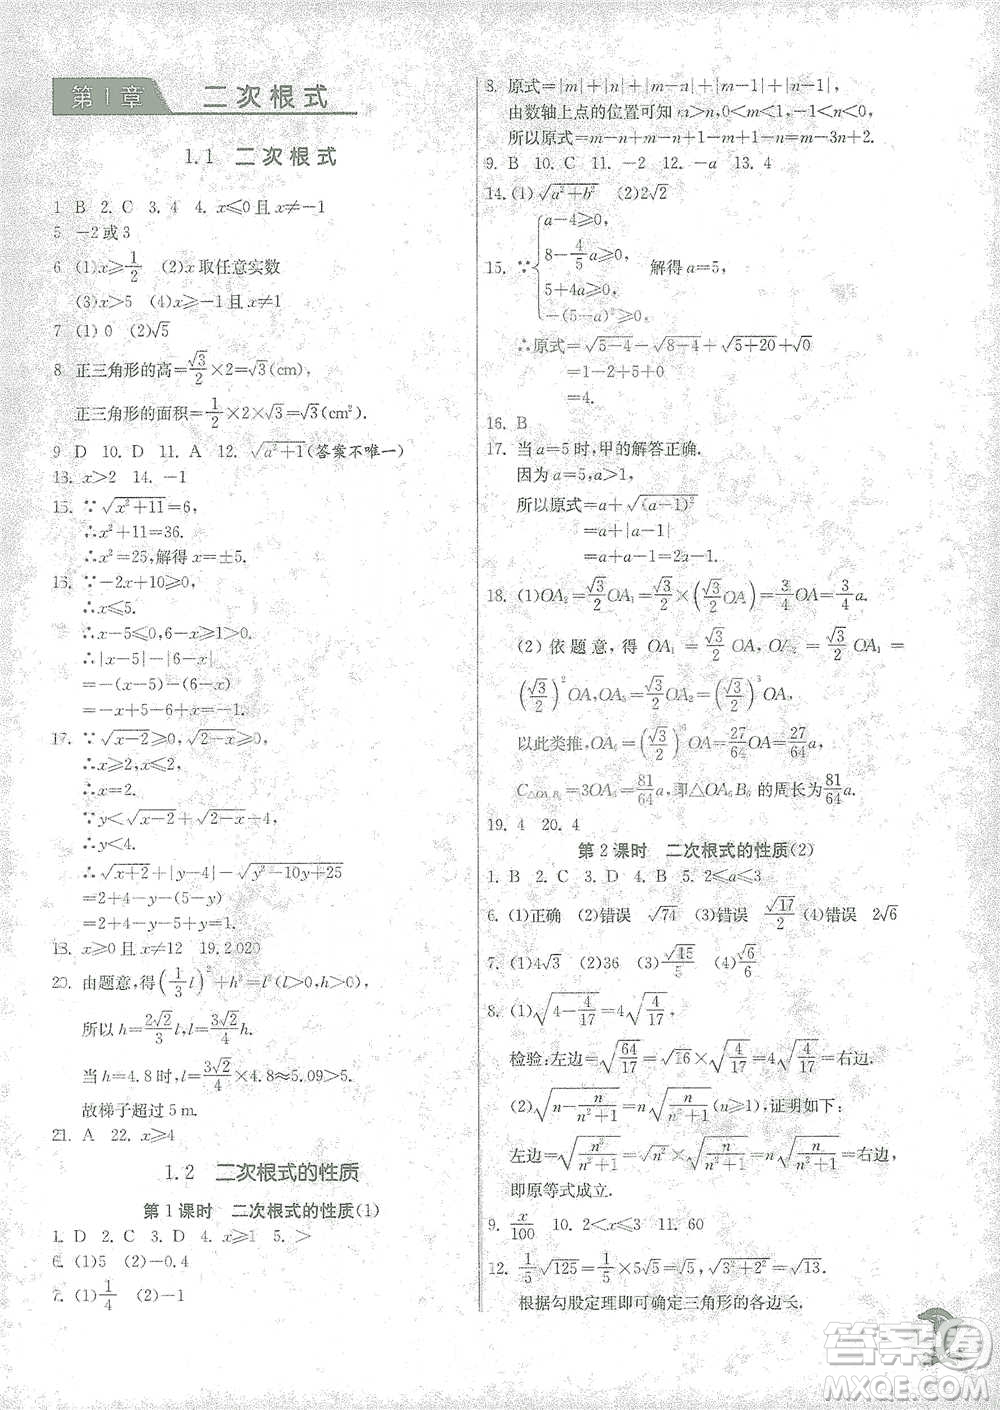 第1章 二次根式
1.1 二次根式
1 B 2. C 3. 4 4. x≤0且x≠-1
5 -2或3
6 (1)x≥1/2 (2)x取任意实数
(3)x>5 (4)x≥-1且x≠1
7 (1)0 (2)√5
8 正三角形的高=√3/2×2=√3(cm),
正三角形的面积=1/2×2×√3=√3(cm²).
9 D 10. D 11. A 12. √(a²+1)(答案不唯一)
13. x>2 14. -1
15. ∵√(x²+11)=6,
∴x²+11=36.
∴x²=25,解得x=±5.
16. ∵-2x+10≥0,
∴x≤5.
∴x-5≤0,6-x≥1>0.
∴|x-5|-|6-x|
=-(x-5)-(6-x)
=-x+5-6+x=-1.
17. ∵√(x-2)≥0,√(2-x)≥0,
∴x≥2,x≤2.
∴x=2.
∵y<√(x-2)+√(2-x)+4,
∴y<4.
∴√(x+2)+|y-4|-√(y²-10y+25)
=2+4-y-(5-y)
=2+4-y-5+y=1.
18. x≥0且x≠12 19. 2 020
20. 由题意,得(1/3 l)²+h²=l²(l>0,h>0),
所以h=2√2/3 l,l=3√2/4 h.
当h=4.8时,l=3√2/4×4.8≈5.09>5.
故梯子超过5 m.
21. A 22. x≥4
1.2 二次根式的性质
第1课时 二次根式的性质(1)
1. D 2. C 3. D 4. x≥1 5. >
6. (1)5 (2)-0.4
7. (1)1/4 (2)-1
8. 原式=|m|+|n|+|m-n|+|n+1|+|m-1|,
由数轴上点的位置可知m>n,0<m<1,-1<n<0,
所以原式=m-n+m-n+n+1-m+1=m-n+2.
9. B 10. C 11. -2 12. -a 13. 4
14. (1)√(a²+b²) (2)2√2
15. ∵{a-4≥0,
8-4/5 a≥0,
5+4a≥0,
-(5-a)²≥0, 解得a=5,
∴原式=√(5-4)-√(8-4)+√(5+20)+√0
=1-2+5+0
=4.
16. B
17. 当a=5时,甲的解答正确.
因为a=5,
所以原式=a+√((a-1)²)
=a+|a-1|
=a+a-1=2a-1.
18. (1)OA₂=√3/2 OA₁=√3/2×(√3/2 OA)=3/4 OA=3/4 a.
(2)依题意,得OA₁=√3/2 OA,OA₂=√3/2 OA₁=
(√3/2)²OA,OA₃=√3/2 OA₂=(√3/2)³OA,
以此类推,OA₆=(√3/2)⁶OA=27/64 OA=27/64 a,
C△OA₆B₆=3OA₆=81/64 a,即△OA₆B₆的周长为81/64 a.
19. 4 20. 4
第2课时 二次根式的性质(2)
1. B 2. C 3. D 4. B 5. 2≤a≤3
6. (1)正确 (2)错误 √74 (3)错误 √17/2 (4)错误 2√6
7. (1)4√3 (2)36 (3)√15/5 (4)√6/6
8. (1)√(4-4/17)=4√(4/17),
检验:左边=√(64/17)=√16×√(4/17)=4√(4/17)=右边.
(2)√(n-n/(n²+1))=n√(n/(n²+1))(n≥1),证明如下:
左边=√(n³/(n²+1))=√n²×√(n/(n²+1))=n√(n/(n²+1))=右边,
即原等式成立.
9. x/100 10. 2<x≤3 11. 60
12. 1/5√125=1/5×5√5=√5;√(2²+3²)=√13.
根据勾股定理即可确定三角形的各边长.
答案圈
MXQE.COM